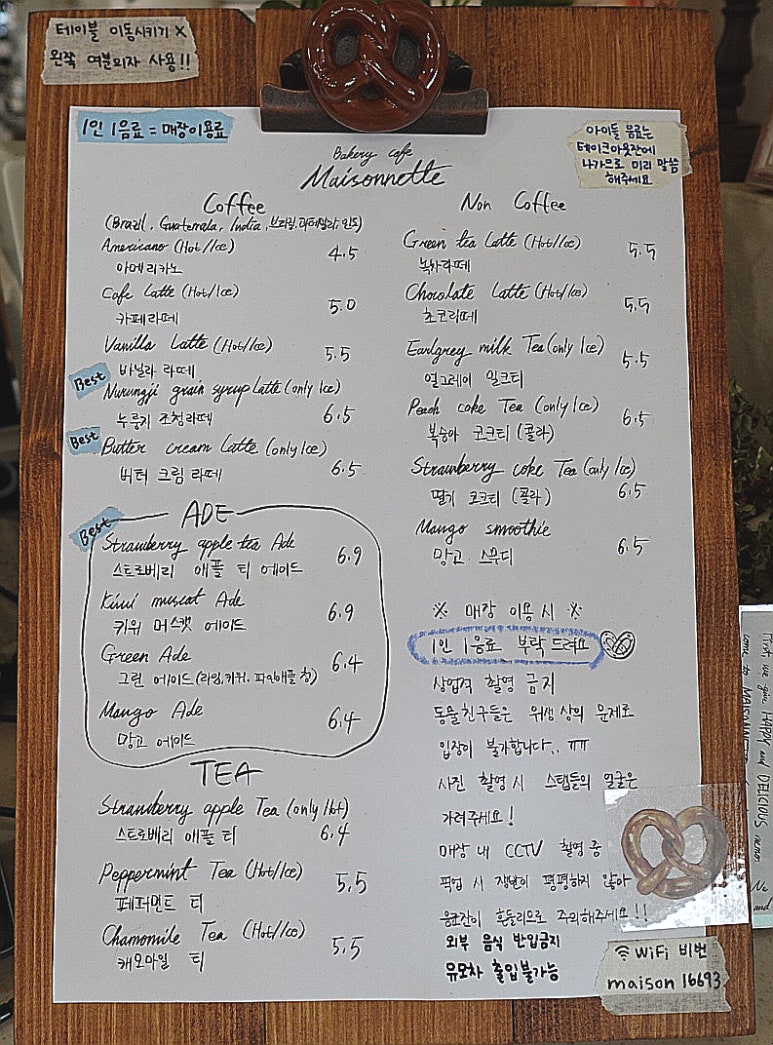 테이블 이동시키기 X
왼쪽 여분의자 사용!!
1인 1음료 = 매장이용료
아이들 음료는
테이크아웃잔에
나가므로 미리 말씀
해주세요
Bakery cafe
Maisonnette
Coffee
(Brazil, Guatemala, India, 브라질, 과테말라, 인도)
Americano (Hot/Ice) 4.5
아메리카노
Cafe Latte (Hot/Ice) 5.0
카페라떼
Vanilla Latte (Hot/Ice) 5.5
바닐라 라떼
Best Nurungji grain syrup Latte (only Ice)
누룽지 조청라떼 6.5
Best Butter cream Latte (only Ice)
버터 크림 라떼 6.5
Best ADE
Strawberry apple tea Ade 6.9
스트로베리 애플 티 에이드
Kiwi muscat Ade 6.9
키위 머스캣 에이드
Green Ade 6.4
그린 에이드 (라임, 키위, 파인애플 청)
Mango Ade 6.4
망고 에이드
TEA
Strawberry apple Tea (only Hot)
스트로베리 애플 티 6.4
Peppermint Tea (Hot/Ice) 5.5
페퍼민트 티
Chamomile Tea (Hot/Ice) 5.5
캐모마일 티
Non Coffee
Green tea Latte (Hot/Ice) 5.5
녹차라떼
Chocolate Latte (Hot/Ice) 5.5
초코라떼
Earlgrey milk Tea (only Ice) 5.5
얼그레이 밀크티
Peach coke Tea (only Ice) 6.5
복숭아 코크티 (콜라)
Strawberry coke Tea (only Ice)
딸기 코크티 (콜라) 6.5
Mango smoothie 6.5
망고 스무디
※ 매장 이용 시 ※
1인 1음료 부탁 드려요
상업적 촬영 금지
동물친구들은 위생 상의 문제로
입장이 불가합니다.. ㅠㅠ
사진 촬영 시 스탭들의 얼굴은
가려주세요!
매장 내 CCTV 촬영 중
픽업 시 쟁반이 평평하지 않아
음료잔이 흔들리므로 주의해주세요!!
외부 음식 반입금지
유모차 출입불가능
WiFi 비번
maison16693
HAPPY and DELICIOUS
come to MAISONNETTE
No
and